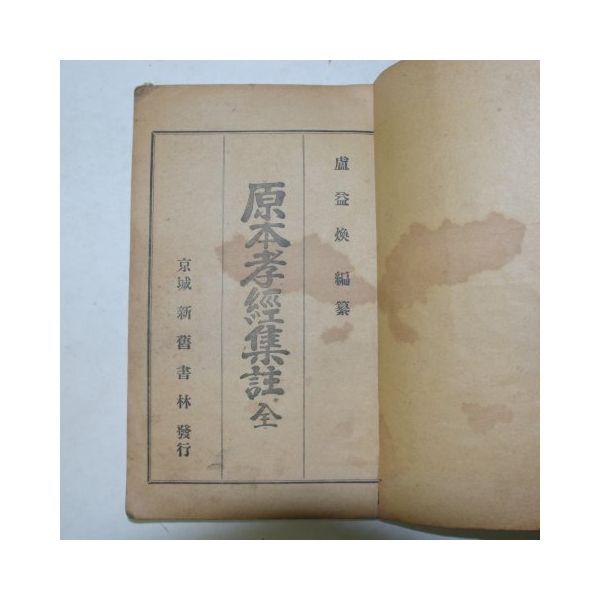 盧益煥編纂
原本孝經集註全
京城新舊書林發行